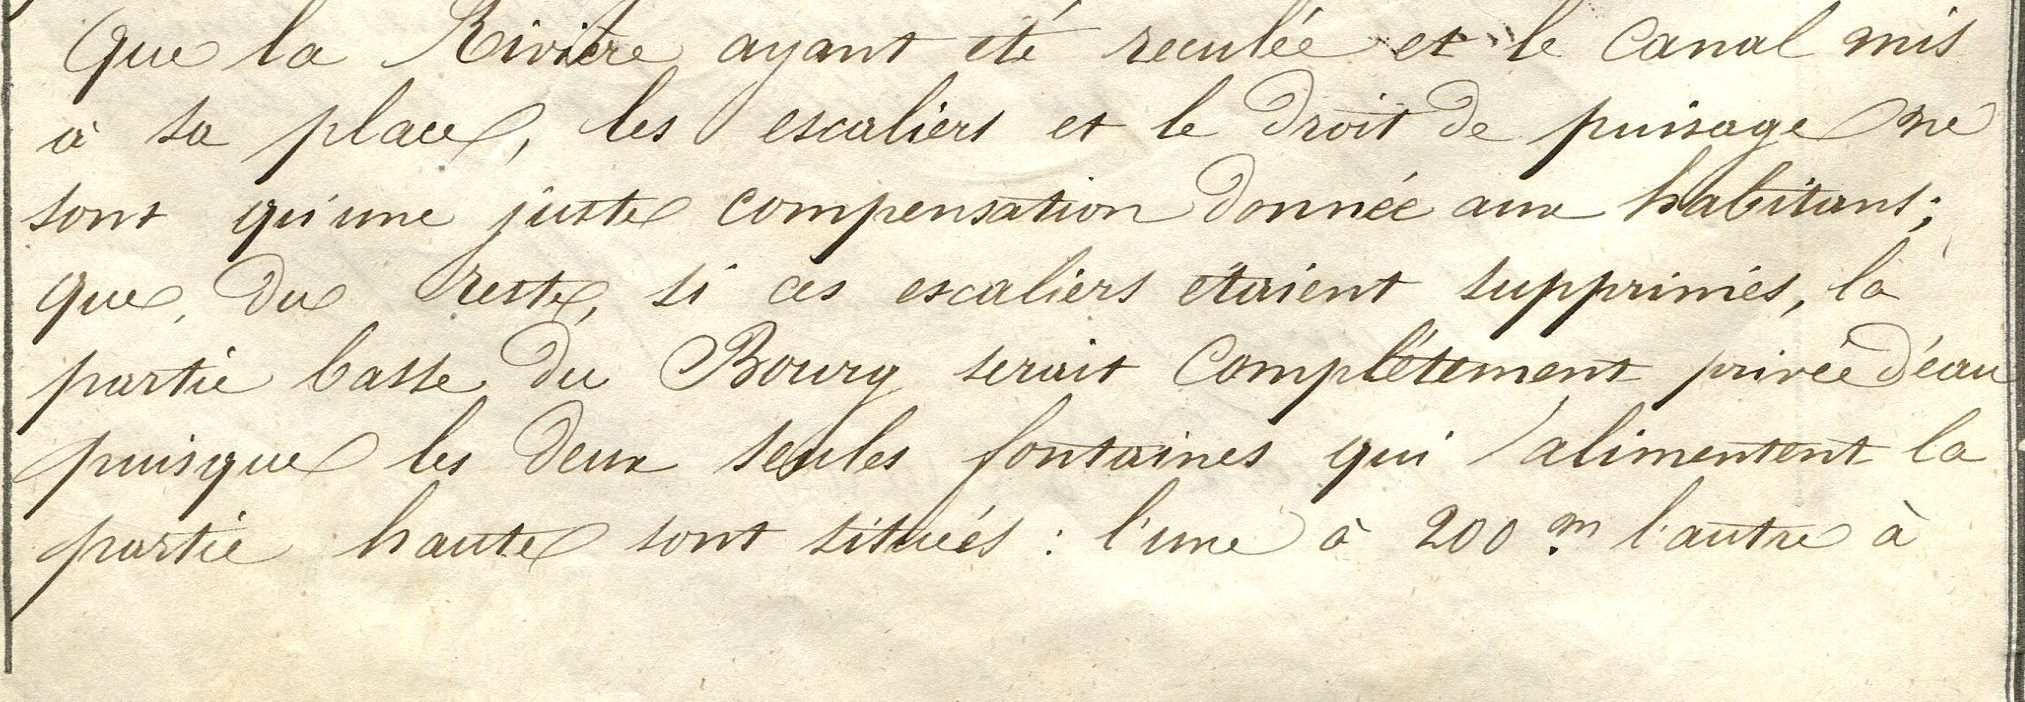 Que la Rivière ayant été reculée et le Canal mis
à sa place, les escaliers et le droit de puisage ne
sont qu'une juste compensation donnée aux habitans;
que, du reste, si ces escaliers étaient supprimés, la
partie basse du Bourg serait complétement privée d'eau
puisque les deux seules fontaines qui alimentent la
partie haute sont situées : l'une à 200 m l'autre à